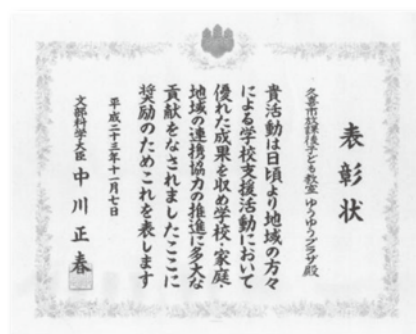 表彰状
久喜市放課後子ども教室 ゆうゆうプラザ殿
貴活動は日頃より地域の方々
による学校支援活動において
優れた成果を収め学校・家庭・
地域の連携協力の推進に多大な
貢献をなされましたここに
奨励のためこれを表します
平成二十三年十一月七日
文部科学大臣 中川正春